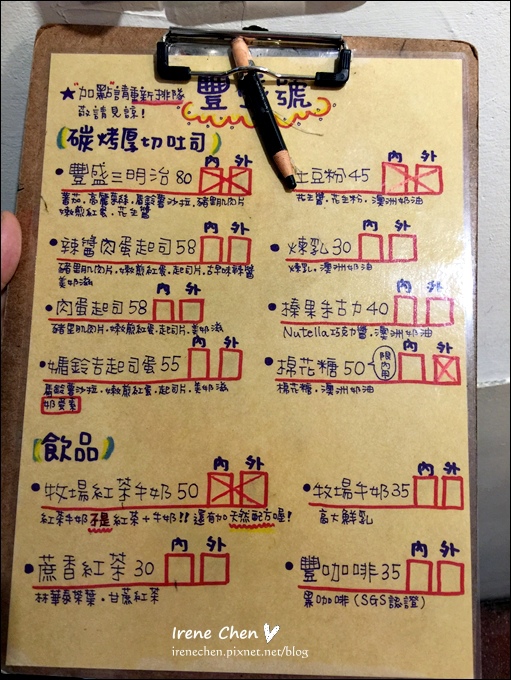 ★"加點"請重新排隊
敬請見諒!
豐盛號
碳烤厚切吐司
內 外
豐盛三明治 80
番茄.高麗菜絲.馬鈴薯沙拉.豬里肌肉片
嫩煎紅蛋.花生醬
內 外
土豆粉 45
花生醬.花生粉.澳洲奶油
內 外
辣醬肉蛋起司 58
豬里肌肉片.嫩煎紅蛋.起司片.古早味辣醬
美奶滋
內 外
煉乳 30
煉乳.澳洲奶油
內 外
肉蛋起司 58
豬里肌肉片.嫩煎紅蛋.起司片.美奶滋
內 外
榛果朱古力 40
Nutella巧克力醬.澳洲奶油
內 外
媽鈴吉起司蛋 55
馬鈴薯沙拉.嫩煎紅蛋.起司片.美奶滋
奶蛋素
內 外
棉花糖 50 限內用
棉花糖.澳洲奶油
飲品
內 外
牧場紅茶牛奶 50
紅茶牛奶不是紅茶+牛奶!! 還有加天然配方喔!
內 外
牧場牛奶 35
高大鮮乳
內 外
蔗香紅茶 30
林華泰茶葉.甘蔗紅茶
內 外
豐咖啡 35
黑咖啡(SGS認證)
Irene Chen
irenechen.pixnet.net/blog